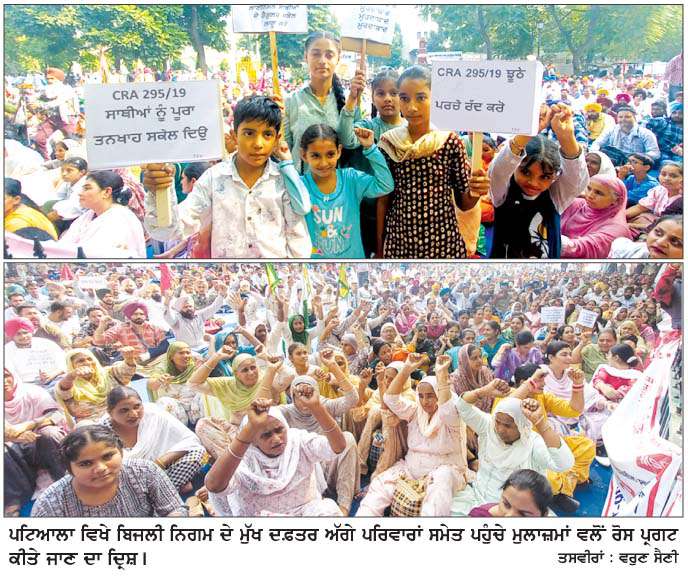 CRA 295/19
ਸਾਥੀਆਂ ਨੂੰ ਪੂਰਾ
ਤਨਖਾਹ ਸਕੇਲ ਦਿਉ
CRA 295/19 ਝੂਠੇ
ਪਰਚੇ ਰੱਦ ਕਰੋ
ਪਟਿਆਲਾ ਵਿਖੇ ਬਿਜਲੀ ਨਿਗਮ ਦੇ ਮੁੱਖ ਦਫ਼ਤਰ ਅੱਗੇ ਪਰਿਵਾਰਾਂ ਸਮੇਤ ਪਹੁੰਚੇ ਮੁਲਾਜ਼ਮਾਂ ਵਲੋਂ ਰੋਸ ਪ੍ਰਗਟ
ਕੀਤੇ ਜਾਣ ਦਾ ਦ੍ਰਿਸ਼।
ਤਸਵੀਰਾਂ : ਵਰੁਣ ਸੈਣੀ